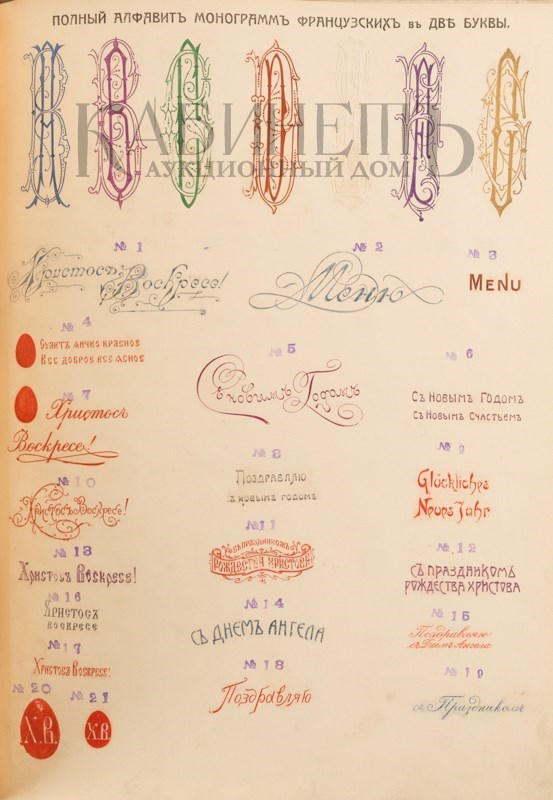 ПОЛНЫЙ АЛФАВИТЪ МОНОГРАММЪ ФРАНЦУЗСКИХЪ въ ДВѢ БУКВЫ.
КАБИНЕТЪ
АУКЦИОННЫЙ ДОМ
№ 1
№ 2
№ 3
Христосъ Воскресе!
Меню
MENU
№ 4
Сулитъ яичко красное
Все доброе все ясное
№ 5
№ 6
Съ Новымъ Годомъ
Съ Новымъ Годомъ
Съ Новымъ Счастьемъ
№ 7
Христосъ
Воскресе!
№ 8
№ 9
Поздравляю
съ новымъ годомъ
Glückliches
Neues Jahr
№ 10
Христосъ Воскресе!
№ 11
Съ праздникомъ
Рождества Христова
№ 12
Съ праздникомъ
Рождества Христова
№ 13
Христосъ Воскресе!
№ 14
Съ Днемъ Ангела
№ 15
Поздравляю
съ Днемъ Ангела
№ 16
Христосъ
воскресе
№ 17
Христосъ Воскресе!
№ 18
Поздравляю
№ 19
съ Праздникомъ
№ 20
№ 21
Х.В.
Х.В.